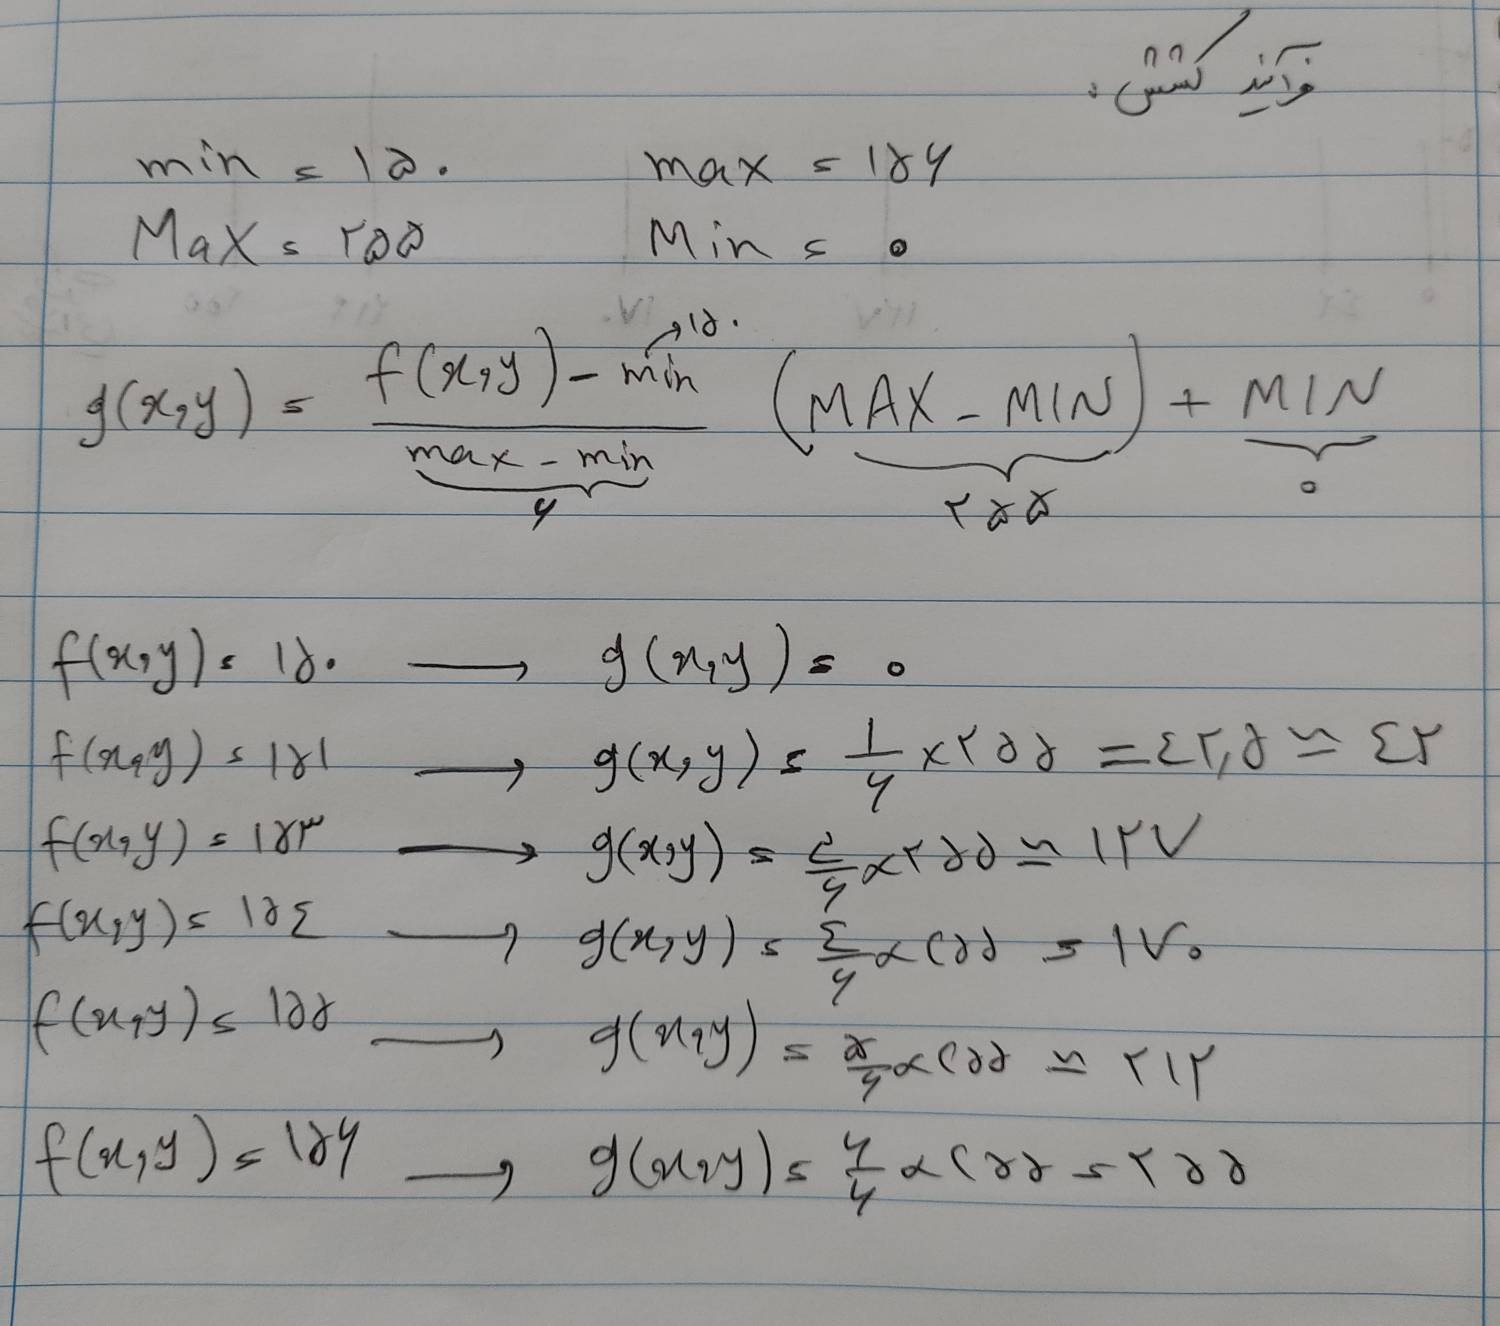 فرآیند کشش:
min = ۱۵۰ max = ۱۵۶
Max = ۲۵۵ Min = ۰
g(x,y) = f(x,y) - min → ۱۵۰ / max - min (MAX - MIN) + MIN
۶ ۲۵۵ ۰
f(x,y) = ۱۵۰ → g(x,y) = ۰
f(x,y) = ۱۵۱ → g(x,y) = ۱/۶ × ۲۵۵ = ۴۲,۵ ≃ ۴۲
f(x,y) = ۱۵۳ → g(x,y) = ۳/۶ × ۲۵۵ ≃ ۱۲۷
f(x,y) = ۱۵۴ → g(x,y) = ۴/۶ × ۲۵۵ = ۱۷۰
f(x,y) = ۱۵۵ → g(x,y) = ۵/۶ × ۲۵۵ ≃ ۲۱۲
f(x,y) = ۱۵۶ → g(x,y) = ۶/۶ × ۲۵۵ = ۲۵۵